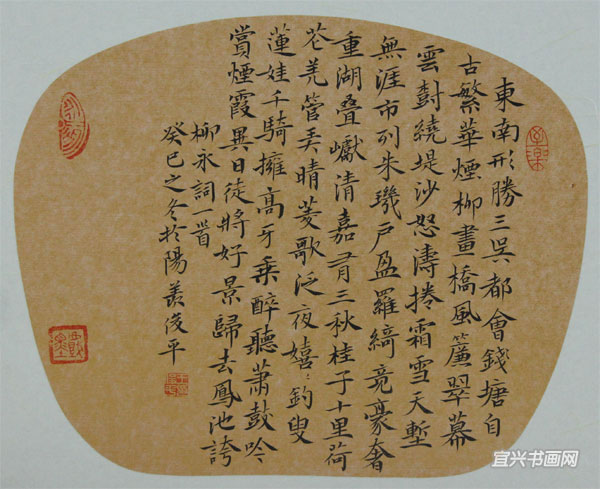 東南形勝三吳都會錢塘自
古繁華煙柳畫橋風簾翠幕
雲尌繞堤沙怒濤捲霜雪天塹
無涯市列朱璣戶盈羅綺竞豪奢
重湖叠巘清嘉有三秋桂子十里荷
花羌管弄晴菱歌泛夜嬉〻釣叟
蓮娃千騎擁高牙乘醉聽蕭鼓吟
賞煙霞異日徒將好景歸去鳳池誇
柳永詞一首
癸巳之冬於陽羨俊平
宜兴书画网